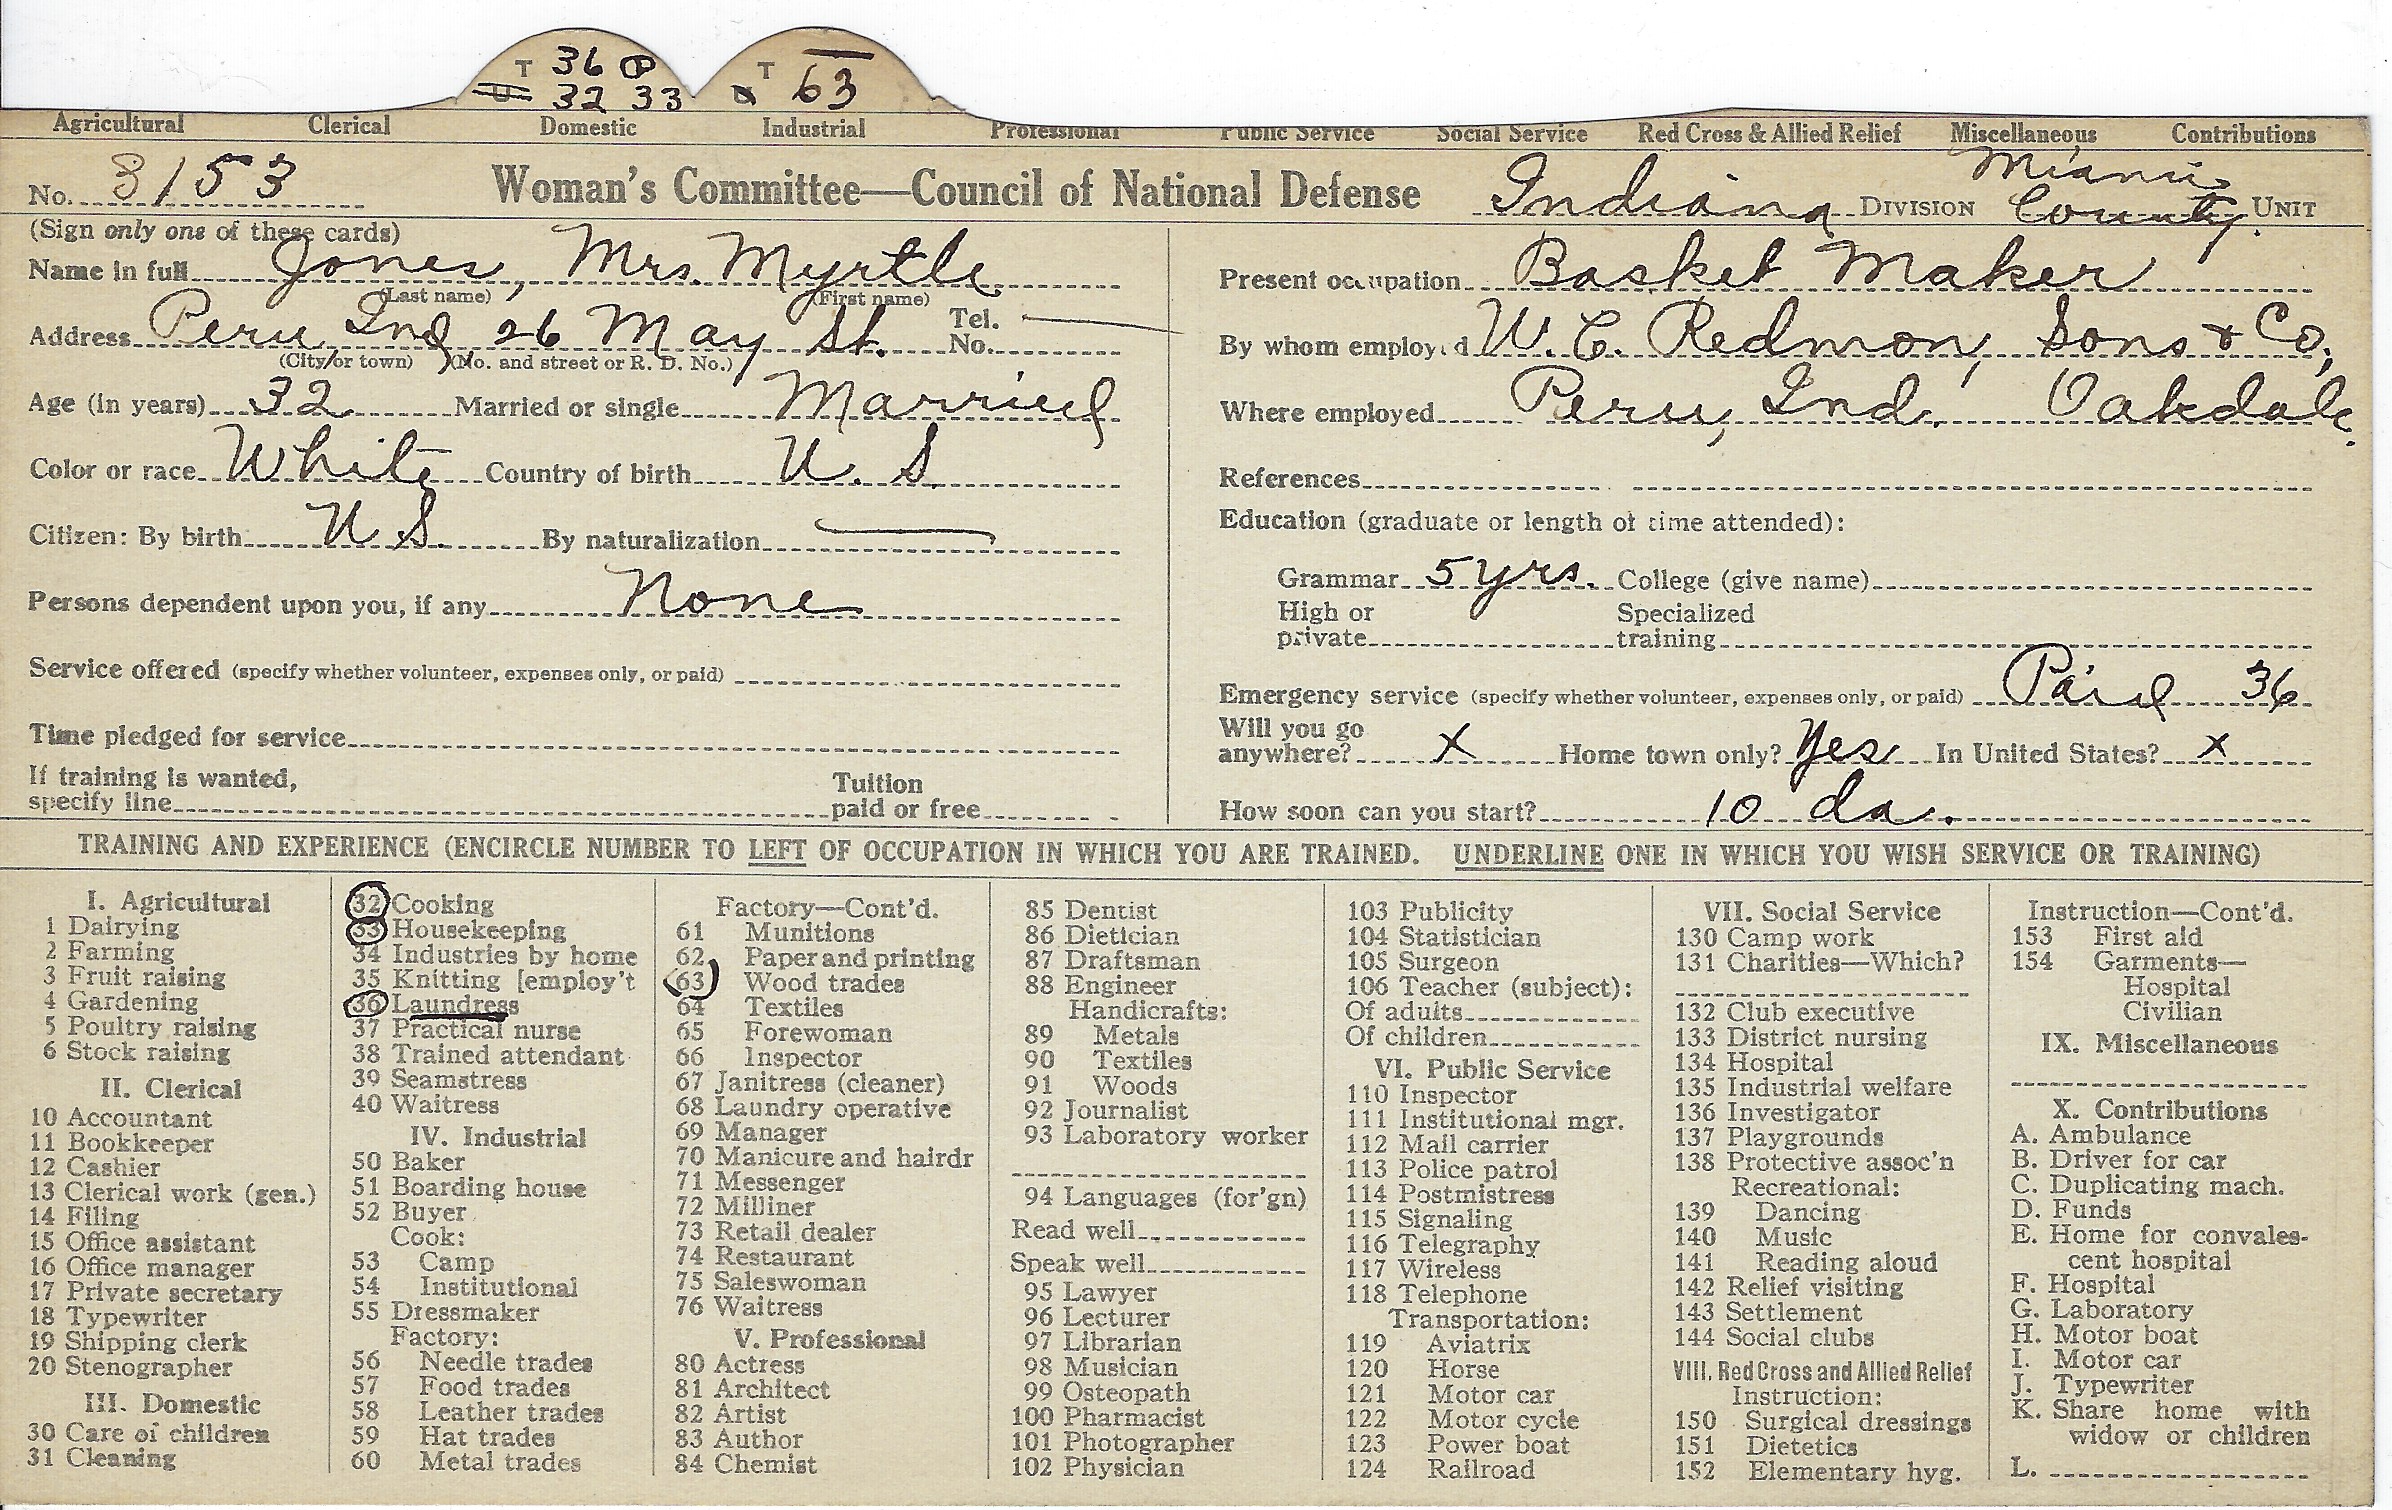 T 36 P T 63
U 32 33
Agricultural Clerical Domestic Industrial Professional Public Service Social Service Red Cross & Allied Relief Miscellaneous Contributions
No. 3153 Woman's Committee—Council of National Defense Indiana DIVISION Miami County. UNIT
(Sign only one of these cards)
Name in full Jones, Mrs. Myrtle
(Last name) (First name)
Address Peru Ind 26 May St. Tel. No.
(City or town) (No. and street or R. D. No.)
Age (in years) 32 Married or single Married
Color or race White Country of birth U. S.
Citizen: By birth U S. By naturalization —
Persons dependent upon you, if any None
Service offered (specify whether volunteer, expenses only, or paid)
Time pledged for service
If training is wanted,
specify line Tuition paid or free
Present occupation Basket Maker
By whom employed W. C. Redmon, Sons & Co.,
Where employed Peru, Ind. Oakdale.
References
Education (graduate or length of time attended):
Grammar 5 yrs. College (give name)
High or private Specialized training
Emergency service (specify whether volunteer, expenses only, or paid) Paid 36
Will you go
anywhere? x Home town only? Yes In United States? x
How soon can you start? 10 da.
TRAINING AND EXPERIENCE (ENCIRCLE NUMBER TO LEFT OF OCCUPATION IN WHICH YOU ARE TRAINED. UNDERLINE ONE IN WHICH YOU WISH SERVICE OR TRAINING)
I. Agricultural
1 Dairying
2 Farming
3 Fruit raising
4 Gardening
5 Poultry raising
6 Stock raising
II. Clerical
10 Accountant
11 Bookkeeper
12 Cashier
13 Clerical work (gen.)
14 Filing
15 Office assistant
16 Office manager
17 Private secretary
18 Typewriter
19 Shipping clerk
20 Stenographer
III. Domestic
30 Care of children
31 Cleaning
32 Cooking
33 Housekeeping
34 Industries by home
35 Knitting [employ't
36 Laundress
37 Practical nurse
38 Trained attendant
39 Seamstress
40 Waitress
IV. Industrial
50 Baker
51 Boarding house
52 Buyer
Cook:
53 Camp
54 Institutional
55 Dressmaker
Factory:
56 Needle trades
57 Food trades
58 Leather trades
59 Hat trades
60 Metal trades
Factory—Cont'd.
61 Munitions
62 Paper and printing
63 Wood trades
64 Textiles
65 Forewoman
66 Inspector
67 Janitress (cleaner)
68 Laundry operative
69 Manager
70 Manicure and hairdr
71 Messenger
72 Milliner
73 Retail dealer
74 Restaurant
75 Saleswoman
76 Waitress
V. Professional
80 Actress
81 Architect
82 Artist
83 Author
84 Chemist
85 Dentist
86 Dietician
87 Draftsman
88 Engineer
Handicrafts:
89 Metals
90 Textiles
91 Woods
92 Journalist
93 Laboratory worker
94 Languages (for'gn)
Read well
Speak well
95 Lawyer
96 Lecturer
97 Librarian
98 Musician
99 Osteopath
100 Pharmacist
101 Photographer
102 Physician
103 Publicity
104 Statistician
105 Surgeon
106 Teacher (subject):
Of adults
Of children
VI. Public Service
110 Inspector
111 Institutional mgr.
112 Mail carrier
113 Police patrol
114 Postmistress
115 Signaling
116 Telegraphy
117 Wireless
118 Telephone
Transportation:
119 Aviatrix
120 Horse
121 Motor car
122 Motor cycle
123 Power boat
124 Railroad
VII. Social Service
130 Camp work
131 Charities—Which?
132 Club executive
133 District nursing
134 Hospital
135 Industrial welfare
136 Investigator
137 Playgrounds
138 Protective assoc'n
Recreational:
139 Dancing
140 Music
141 Reading aloud
142 Relief visiting
143 Settlement
144 Social clubs
VIII. Red Cross and Allied Relief
Instruction:
150 Surgical dressings
151 Dietetics
152 Elementary hyg.
Instruction—Cont'd.
153 First aid
154 Garments—
Hospital
Civilian
IX. Miscellaneous
X. Contributions
A. Ambulance
B. Driver for car
C. Duplicating mach.
D. Funds
E. Home for convales-
cent hospital
F. Hospital
G. Laboratory
H. Motor boat
I. Motor car
J. Typewriter
K. Share home with
widow or children
L.